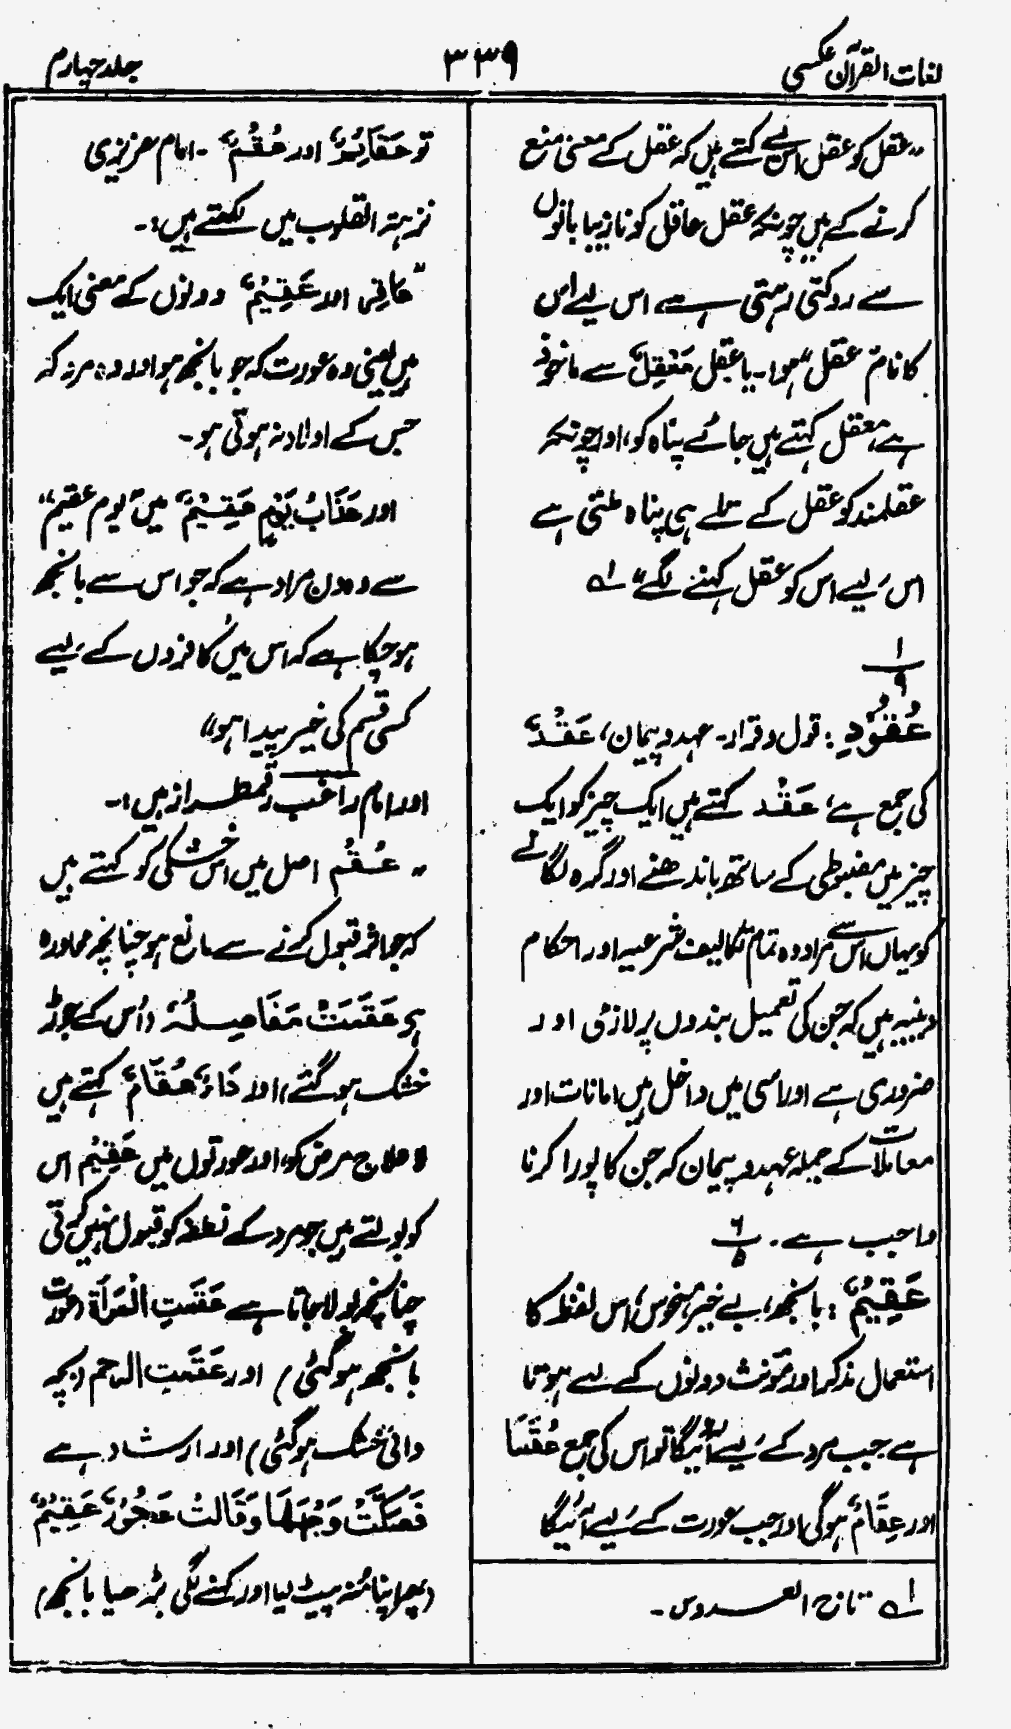 لغات القرآن عکسی
۳۳۹
جلد چہارم
”عقل کو عقل اس لیے کہتے ہیں کہ عقل کے معنی منع
کرنے کے ہیں چونکہ عقل عاقل کو نازیبا باتوں
سے روکتی رہتی ہے اس لیے اس
کا نام عقل ہوا۔ یا عقل مَعْقِلٌ سے ماخوذ
ہے، معقل کہتے ہیں جائے پناہ کو، اور چونکہ
عقلمند کو عقل کے تلے ہی پناہ ملتی ہے
اس لیے اس کو عقل کہنے لگے“ ۱ے
۱
۹
عُقُوْدِ: قول و قرار۔ عہد و پیمان، عَقْدٌ
کی جمع ہے، عَقْد کہتے ہیں ایک چیز کو ایک
چیز میں مضبوطی کے ساتھ باندھنے اور گرہ لگانے
کو یہاں اس سے مراد وہ تمام تکالیف شرعیہ اور احکام
دینیہ ہیں کہ جن کی تعمیل بندوں پر لازمی اور
ضروری ہے اور اسی میں داخل ہیں امانات اور
معاملات کے جملہ عہد و پیمان کہ جن کا پورا کرنا
واجب ہے۔ ۶
۵
عَقِیْمٌ: بانجھ، بے خیر، منحوس، اس لفظ کا
استعمال مذکر اور مؤنث دونوں کے لیے ہوتا
ہے جب مرد کے لیے آئیگا تو اس کی جمع عُقَمَا
اور عِقَامٌ ہوگی اور جب عورت کے لیے آئیگا
۱ے تاج العروس۔
تو عَقَائِمُ اور عُقُمٌ۔ امام عزیزی
نزہتہ القلوب میں لکھتے ہیں:۔
”عاقر اور عَقِیْمٌ دونوں کے معنی ایک
ہیں یعنی وہ عورت کہ جو بانجھ ہو اور وہ مرد کہ
جس کے اولاد نہ ہوتی ہو۔
اور عَذَابُ یَوْمٍ عَقِیْمٍ میں ”یوم عقیم“
سے وہ دن مراد ہے کہ جو اس سے بانجھ
ہو چکا ہے کہ اس میں کافروں کے لیے
کسی قسم کی خیر پیدا ہو“
اور امام راغب رقمطراز ہیں:۔
”عُقْم اصل میں اس خشکی کو کہتے ہیں
کہ جو اثر قبول کرنے سے مانع ہو چنانچہ محاورہ
ہے عَقَمَتْ مَفَاصِلُہٗ (اُس کے جوڑ
خشک ہو گئے) اور دَاءٌ عُقَامٌ کہتے ہیں
لاعلاج مرض کو، اور عورتوں میں عَقِیْم اس
کو بولتے ہیں جو مرد کے نطفہ کو قبول نہیں کرتی
چنانچہ بولا جاتا ہے عَقَمَتِ الْمَرْأَۃ (عورت
بانجھ ہو گئی) اور عَقَمَتِ الرحم (بچہ
دانی خشک ہو گئی) اور ارشاد ہے
فَصَكَّتْ وَجْهَهَا وَقَالَتْ عَجُوْزٌ عَقِیْمٌ
(پھر اپنا منہ پیٹ لیا اور کہنے لگی بڑھیا بانجھ)